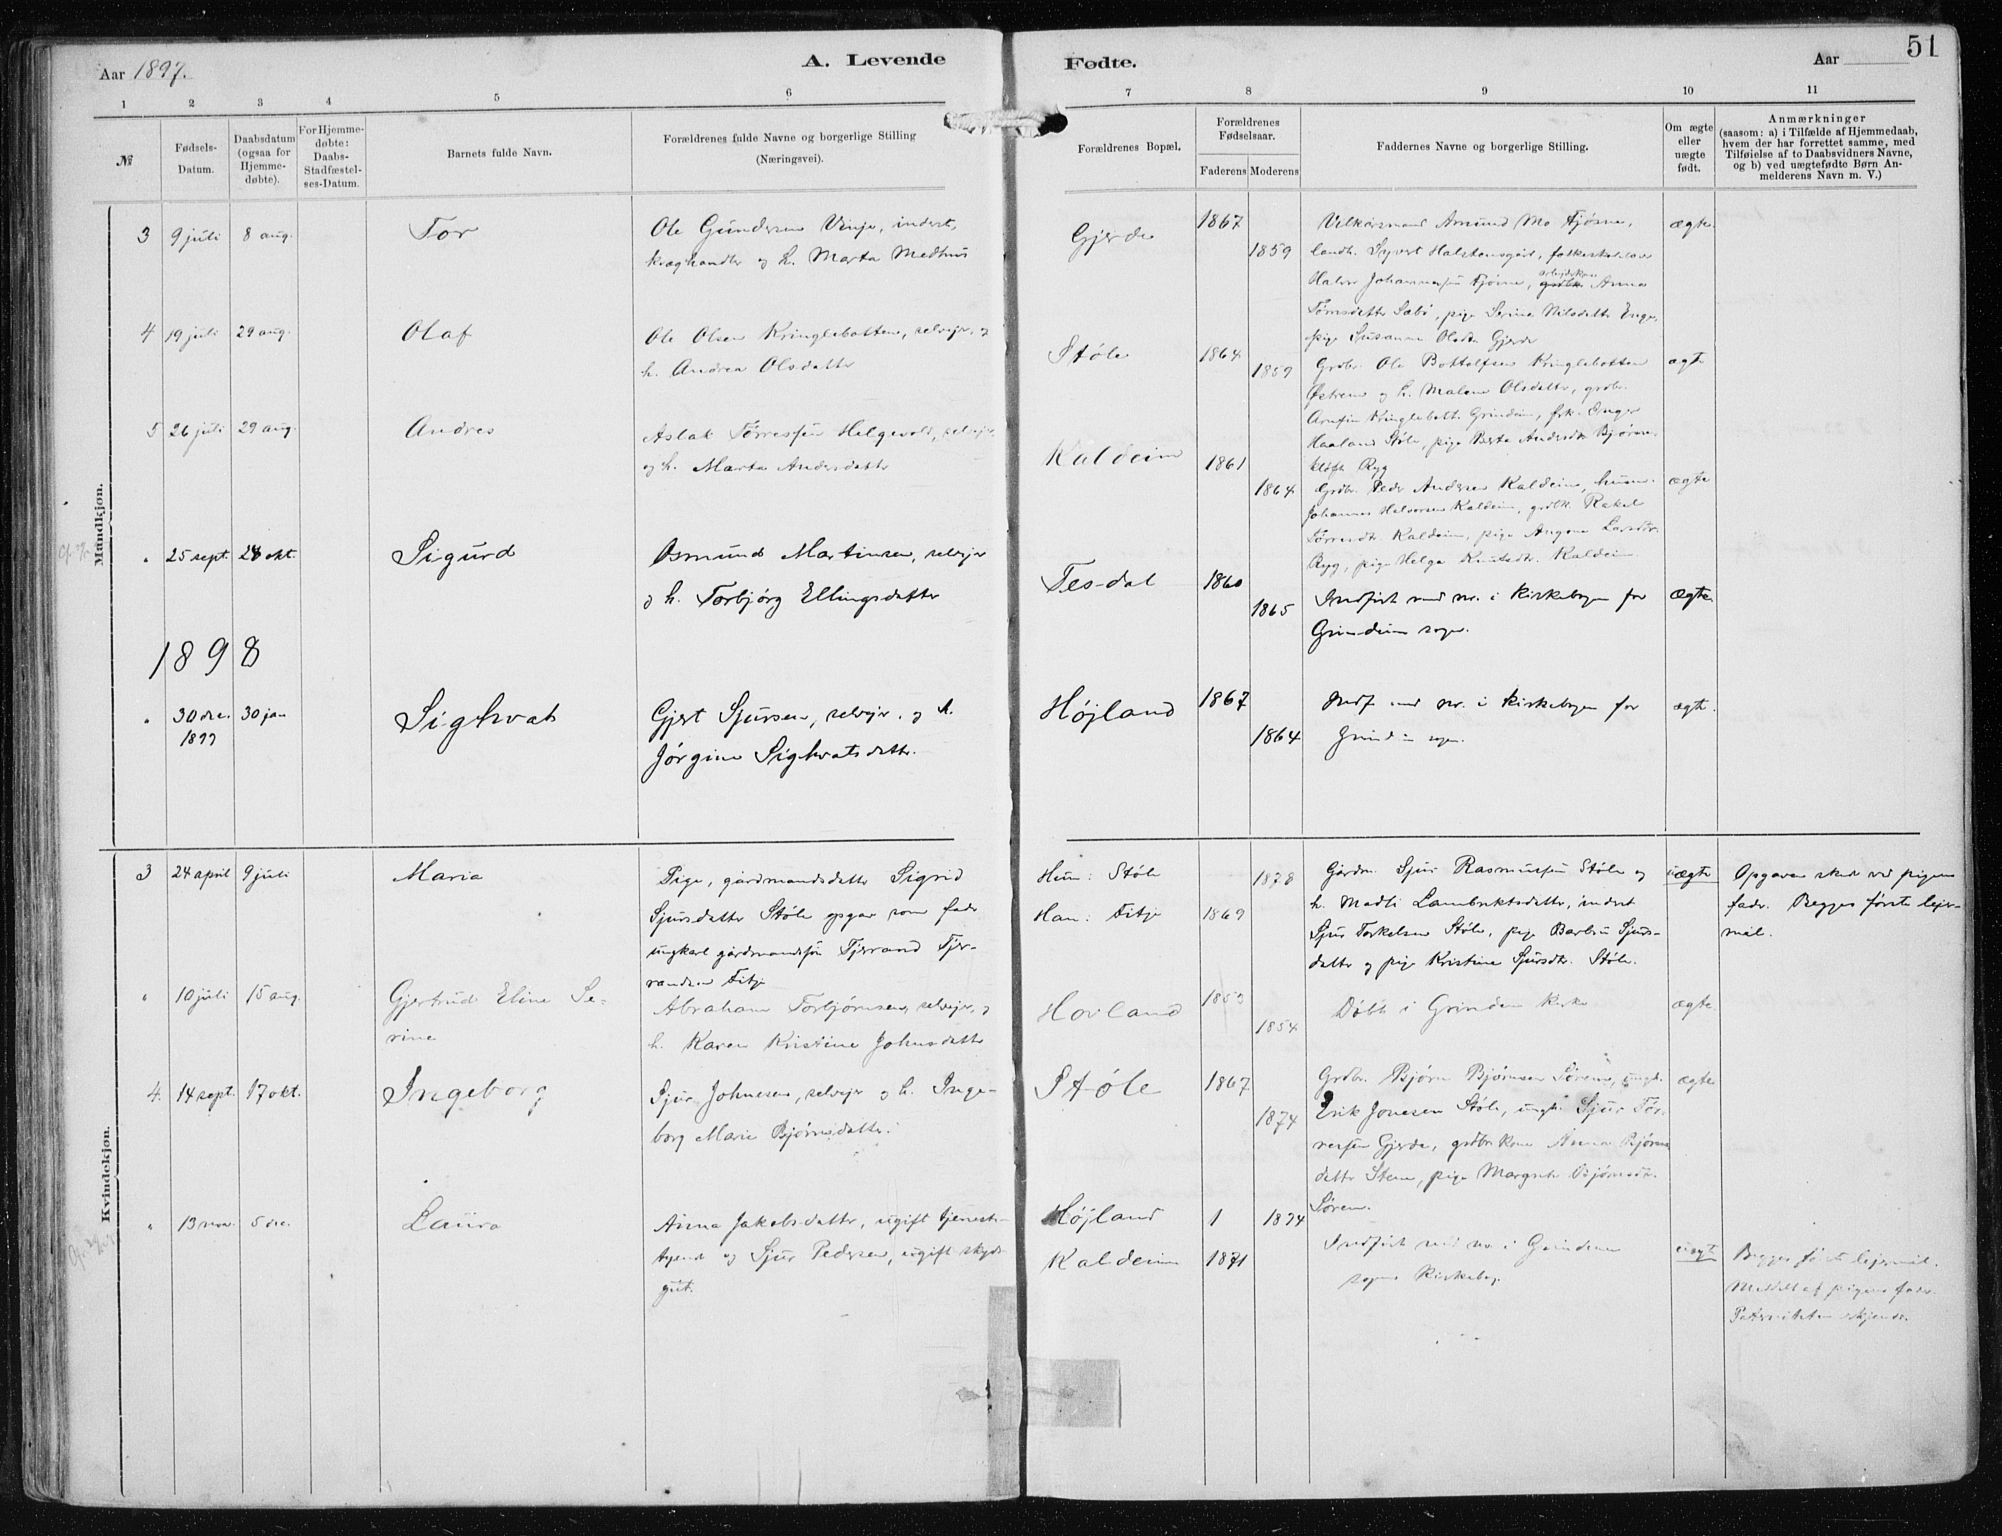 Aar 1897.
A. Levende
Fødte.
Aar
51
1 2 3 4 5 6 7 8 9 10 11
№
Fødsels-
Datum.
Daabsdatum
(ogsaa for
Hjemme-
døbte).
For Hjemme-
døbte:
Daabs-
Stadfæstel-
ses-Datum.
Barnets fulde Navn.
Forældrenes fulde Navne og borgerlige Stilling
(Næringsvei).
Forældrenes Bopæl.
Forældrenes
Fødselsaar.
Faderens Moderens
Faddernes Navne og borgerlige Stilling.
Om ægte
eller
uægte
født.
Anmærkninger
(saasom: a) i Tilfælde af Hjemmedaab,
hvem der har forrettet samme, med
Tilføielse af to Daabsvidners Navne,
og b) ved uægtefødte Børn An-
melderens Navn m. V.)
Mandkjøn.
3 9 juli 8 aug. Tor
Ole Gundersen Vinje, inderst,
kræghandler og h. Marta Medhus
Gjerde 1867 1859
Velkårsmand Amund Mo Fjøsne,
landh. Syvert Halstensgård,
Halvor Johannessen Fjøsne, Anna
Tørresdatter Sæbø, pige Serine Nilsdatter Enge,
pige Susanne Olsdtr Gjerde
ægte
4 19 juli 29 aug. Olaf
Ole Olsen Kringlebotten, selvejr, og
h. Andrea Olsdatter
Støle 1864 1859
Grdbr. Ole Bottolfsen Kringlebotten
Østrem og h. Malene Olsdatter, grdbr.
Kringlebott. Grindeim, frk. Inger
Haaland Støle, pige Berta Andersdtr Bjørne-
kløft Ryg
ægte
5 26 juli 29 aug. Andres
Aslak Tørressen Helgevold, selvejr
og h. Marta Andersdatter
Kaldeim 1861 1864
Grdbr. Peder Andersen Kaldeim, husm.
Johannes Halvorsen Kaldeim, grdbk. Rakel
Tørresdtr Kaldeim, pige Larsdtr.
Ryg, pige Helga Knutsdtr. Kaldeim.
ægte
" 25 sept. 24 okt. Sigurd
Osmund Martinsen, selvejr
og h. Torbjørg Ellingsdatter
Tesdal 1860 1865
Indført med nr. i kirkebogen for
Grindeim sogn.
ægte
1898
" 30 dec. 1897 30 jan Sighvat
Gjert Sjursen, selvejr. og h.
Jørgine Sighvatsdatter.
Højland 1867 1864
Indf med nr. i kirkebogen for
Grindeim sogn.
ægte.
Kvindekjøn.
3 24 april 9 juli Maria
Pige, gårdmandsdatter Sigrid
Sjursdatter Støle opgav som fader
ungkarl gårdmandssøn Tjerand Tjer-
randsen Fitje
Hun: Støle 1878
Han: Fitje 1869
Gårdm. Sjur Rasmussen Støle og
h. Madli Lambriktsdatter, inderst
Sjur Torkelsen Støle, pige Barbru Sjurs-
datter og pige Kristine Sjursdtr. Støle.
uægte
Opgaven sked ved pigens
fader. Begges første lejer-
mål.
" 10 juli 15 aug. Gjertrud Eline Se-
rine
Abraham Torbjørnsen, selvejr, og
h. Karen Kristine Johnsdatter
Hovland 1854
Døbt i Grindeim kirke
ægte
4. 14 sept. 17 okt. Ingeborg
Sjur Johnesen, selvejr og h. Inge-
borg Marie Bjørnsdatter.
Støle 1867 1874
Grdbr. Bjørn Bjørnsen Sørem, ungk.
Erik Jonesen Støle, ungk. Sjur Tør-
ressen Gjerde, grdbr.kone Anna Bjørns
datter Stene, pige Margrete Bjørnsdtr.
Sørem.
ægte
" 13 nov. 5 dec. Laura
Anna Jakobsdatter, ugift tjeneste-
tyende og Sjur Pedersen, ugift skyds
gut.
Højland 1 1874
Kaldeim 1871
Indført med no i Grindeim
sogns kirkebog.
uægt
Begges første lejermål.
Meddelt af pigens fader.
Paterniteten erkjendt.